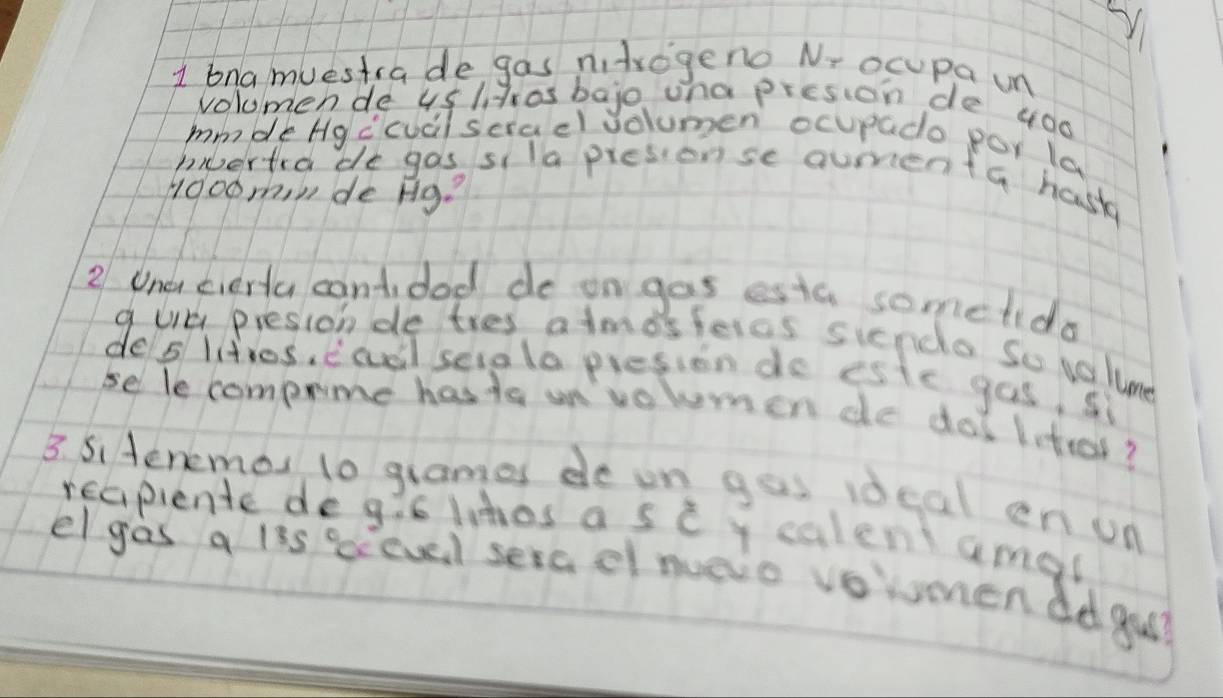 1 una muestra de gas nitrogeno N₂ ocupa un
volumen de 45 litros bajo una presión de 400
mm de Hg ¿cuál sera el volumen ocupado por la
muertra de gas si la presion se aumenta hasta
1000 mm de Hg?
2 una cierta cantidad de un gas esta sometida
a una presion de tres atmosferas siendo so volume
de 5 litros. ¿cual sera la presión de este gas, si
se le comprime hasta un volumen de dos litros?
3 si tenemos 10 gramos de un gas ideal en un
recipiente de 9.6 litros a 5 c y calentamos
el gas a 135 °c ¿cual sera el nuevo volumen del gas?